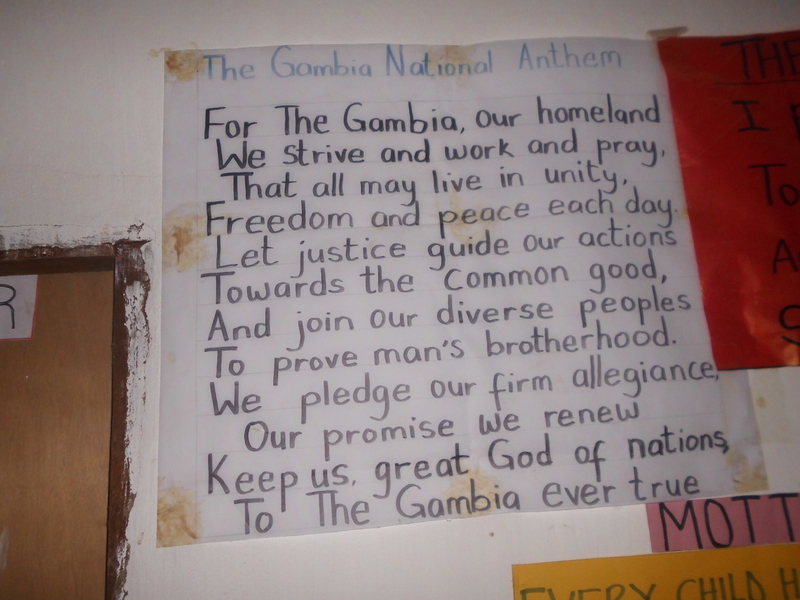 The Gambia National Anthem
For The Gambia, our homeland
We strive and work and pray,
That all may live in unity,
Freedom and peace each day.
Let justice guide our actions
Towards the common good,
And join our diverse peoples
To prove man's brotherhood.
We pledge our firm allegiance,
Our promise we renew
Keep us, great God of nations,
To The Gambia ever true
R
THE
I
To
A
MOTT
EVERY CHILD H